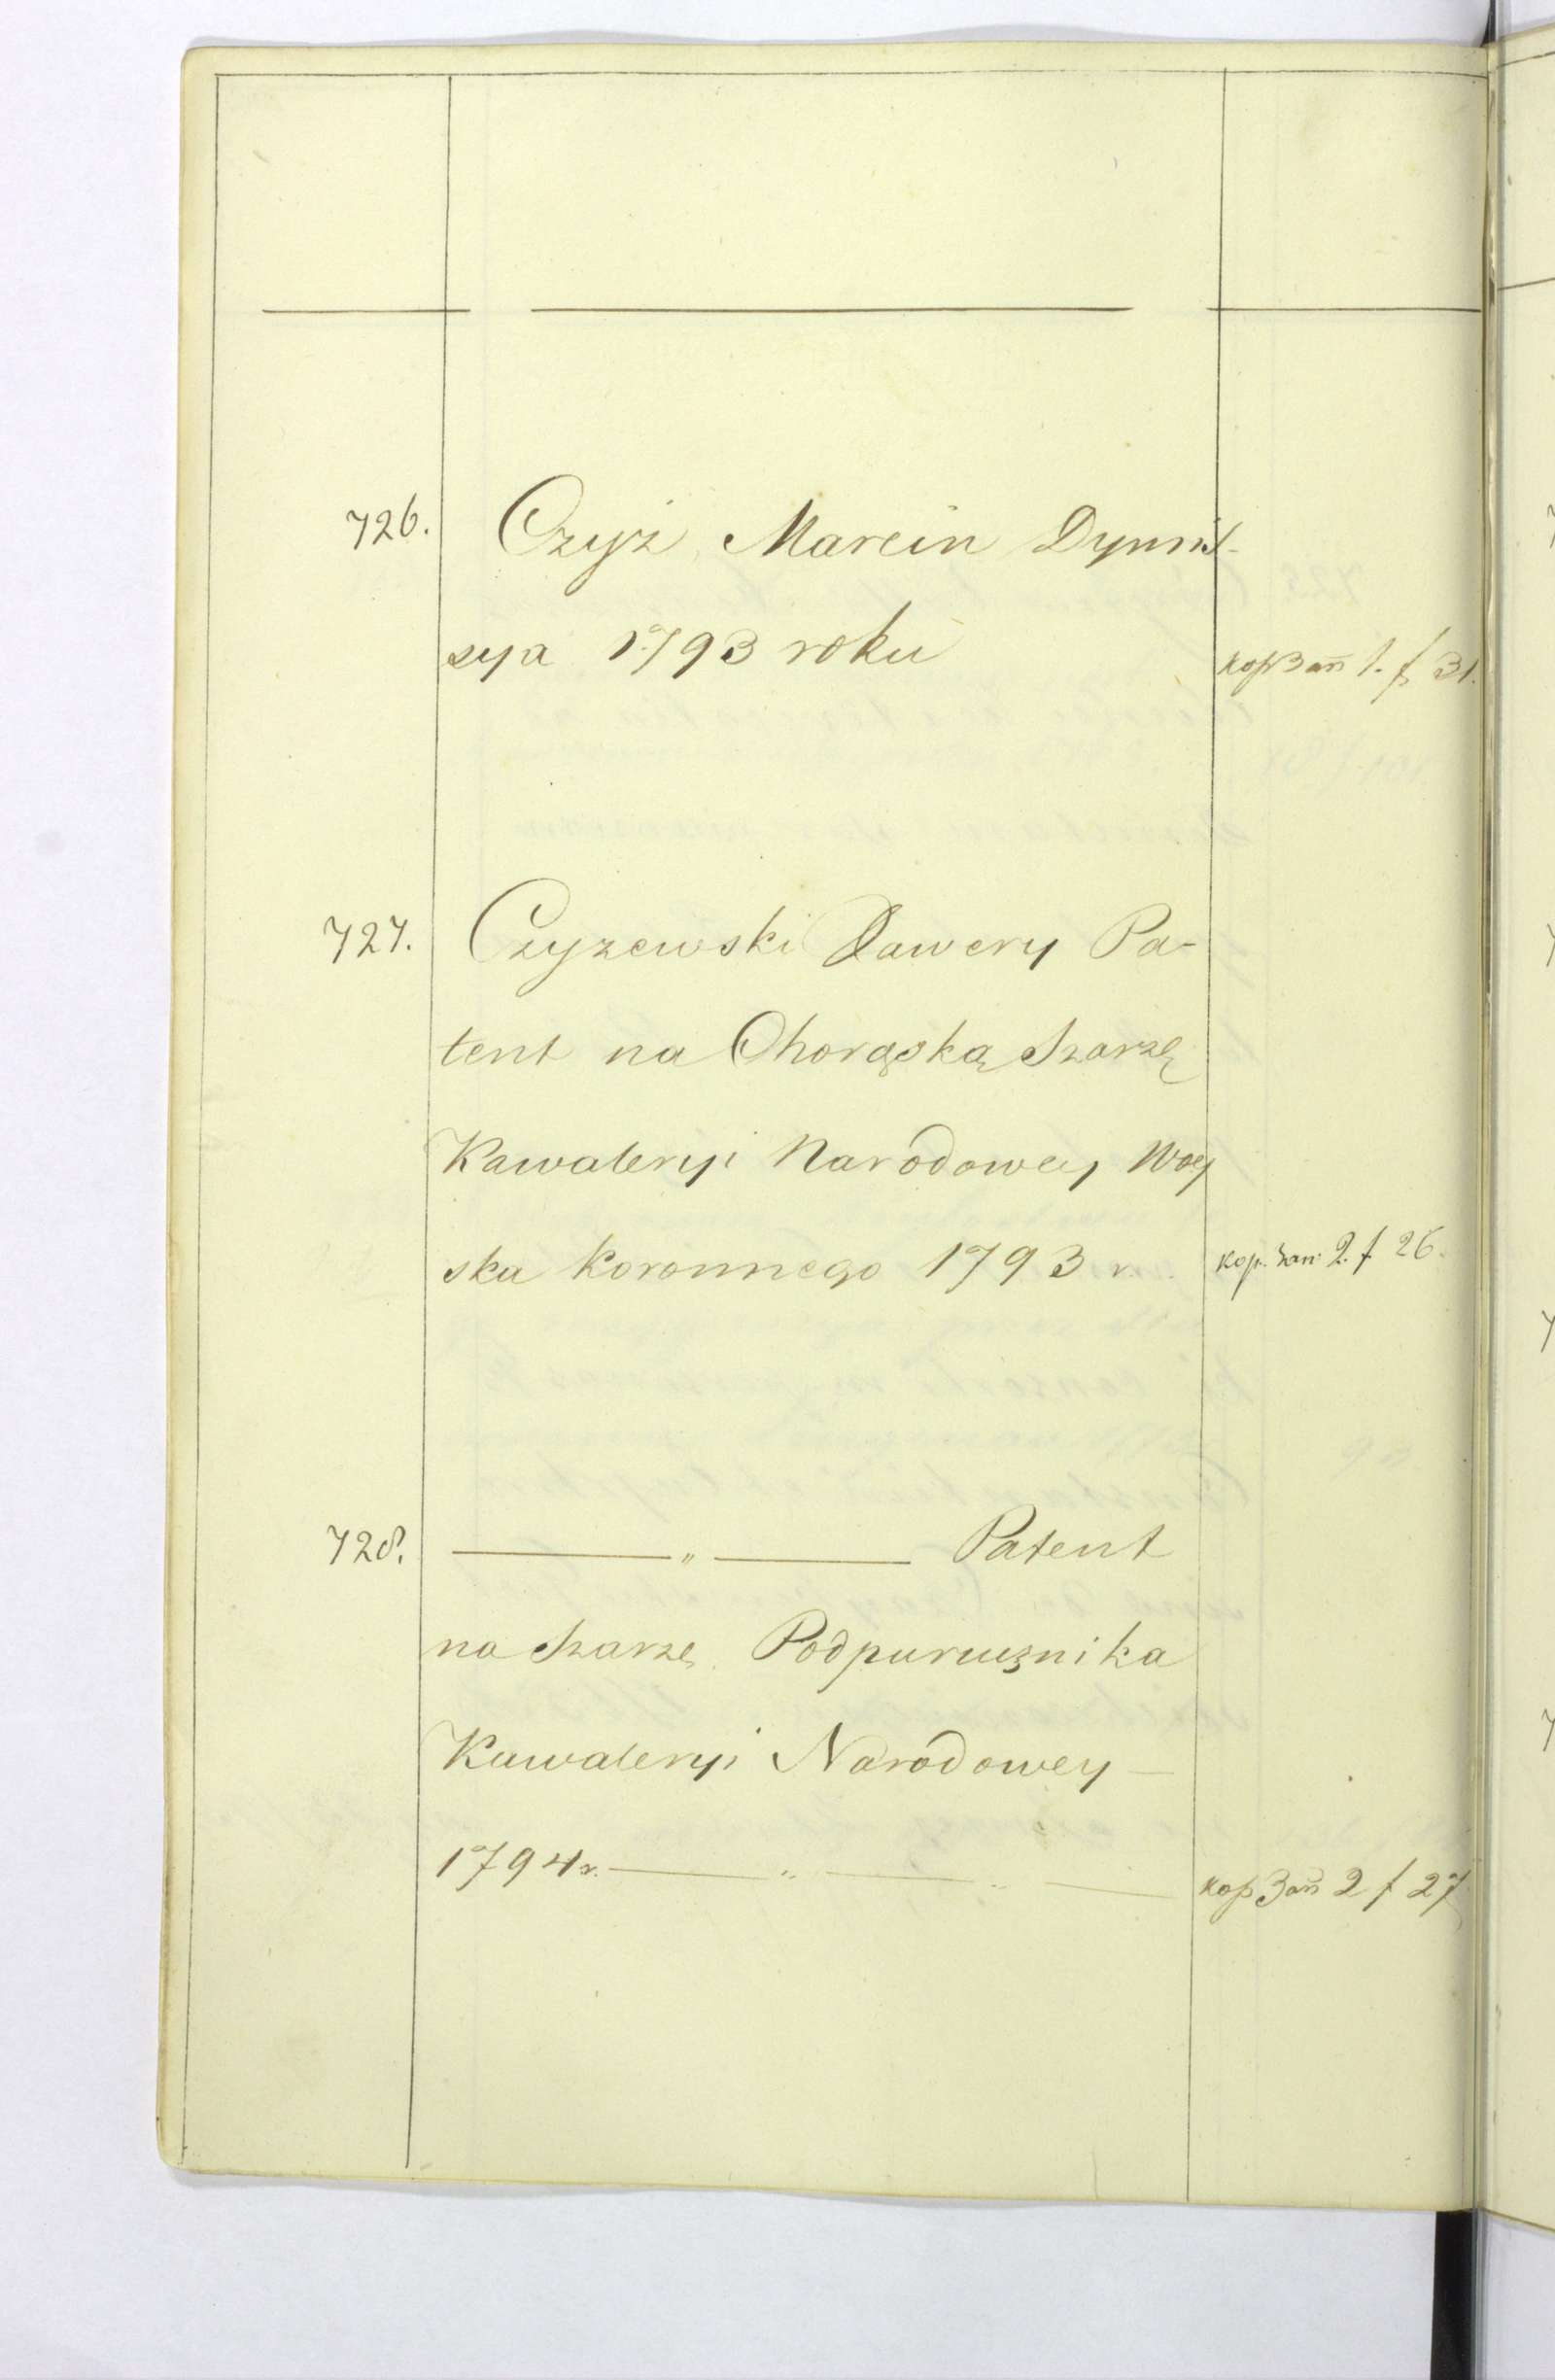 726. Czyż Marcin Dymis-
sya 1793 roku
кор Зап 1. f 31.
727. Czyzewski Xawery Pa-
tent na Chorąską Szarzę
Kawaleryi Narodowey Woy
ska Koronnego 1793 r.
кор. Зап. 2. f 26.
728. ———„——— Patent
na Szarzę Podporucznika
Kawaleryi Narodowey —
1794 r. ———„———„———
кор Зап 2 f 27